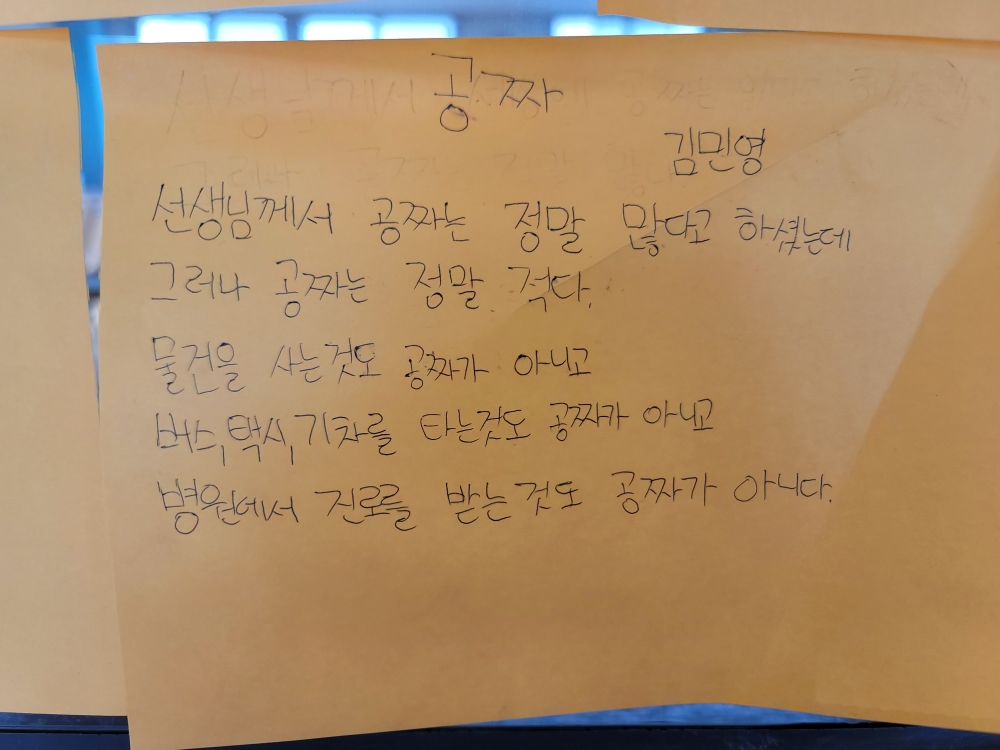 공짜
김민영
선생님께서 공짜는 정말 많다고 하셨는데
그러나 공짜는 정말 적다.
물건을 사는것도 공짜가 아니고
버스,택시,기차를 타는것도 공짜가 아니고
병원에서 진료를 받는것도 공짜가 아니다.